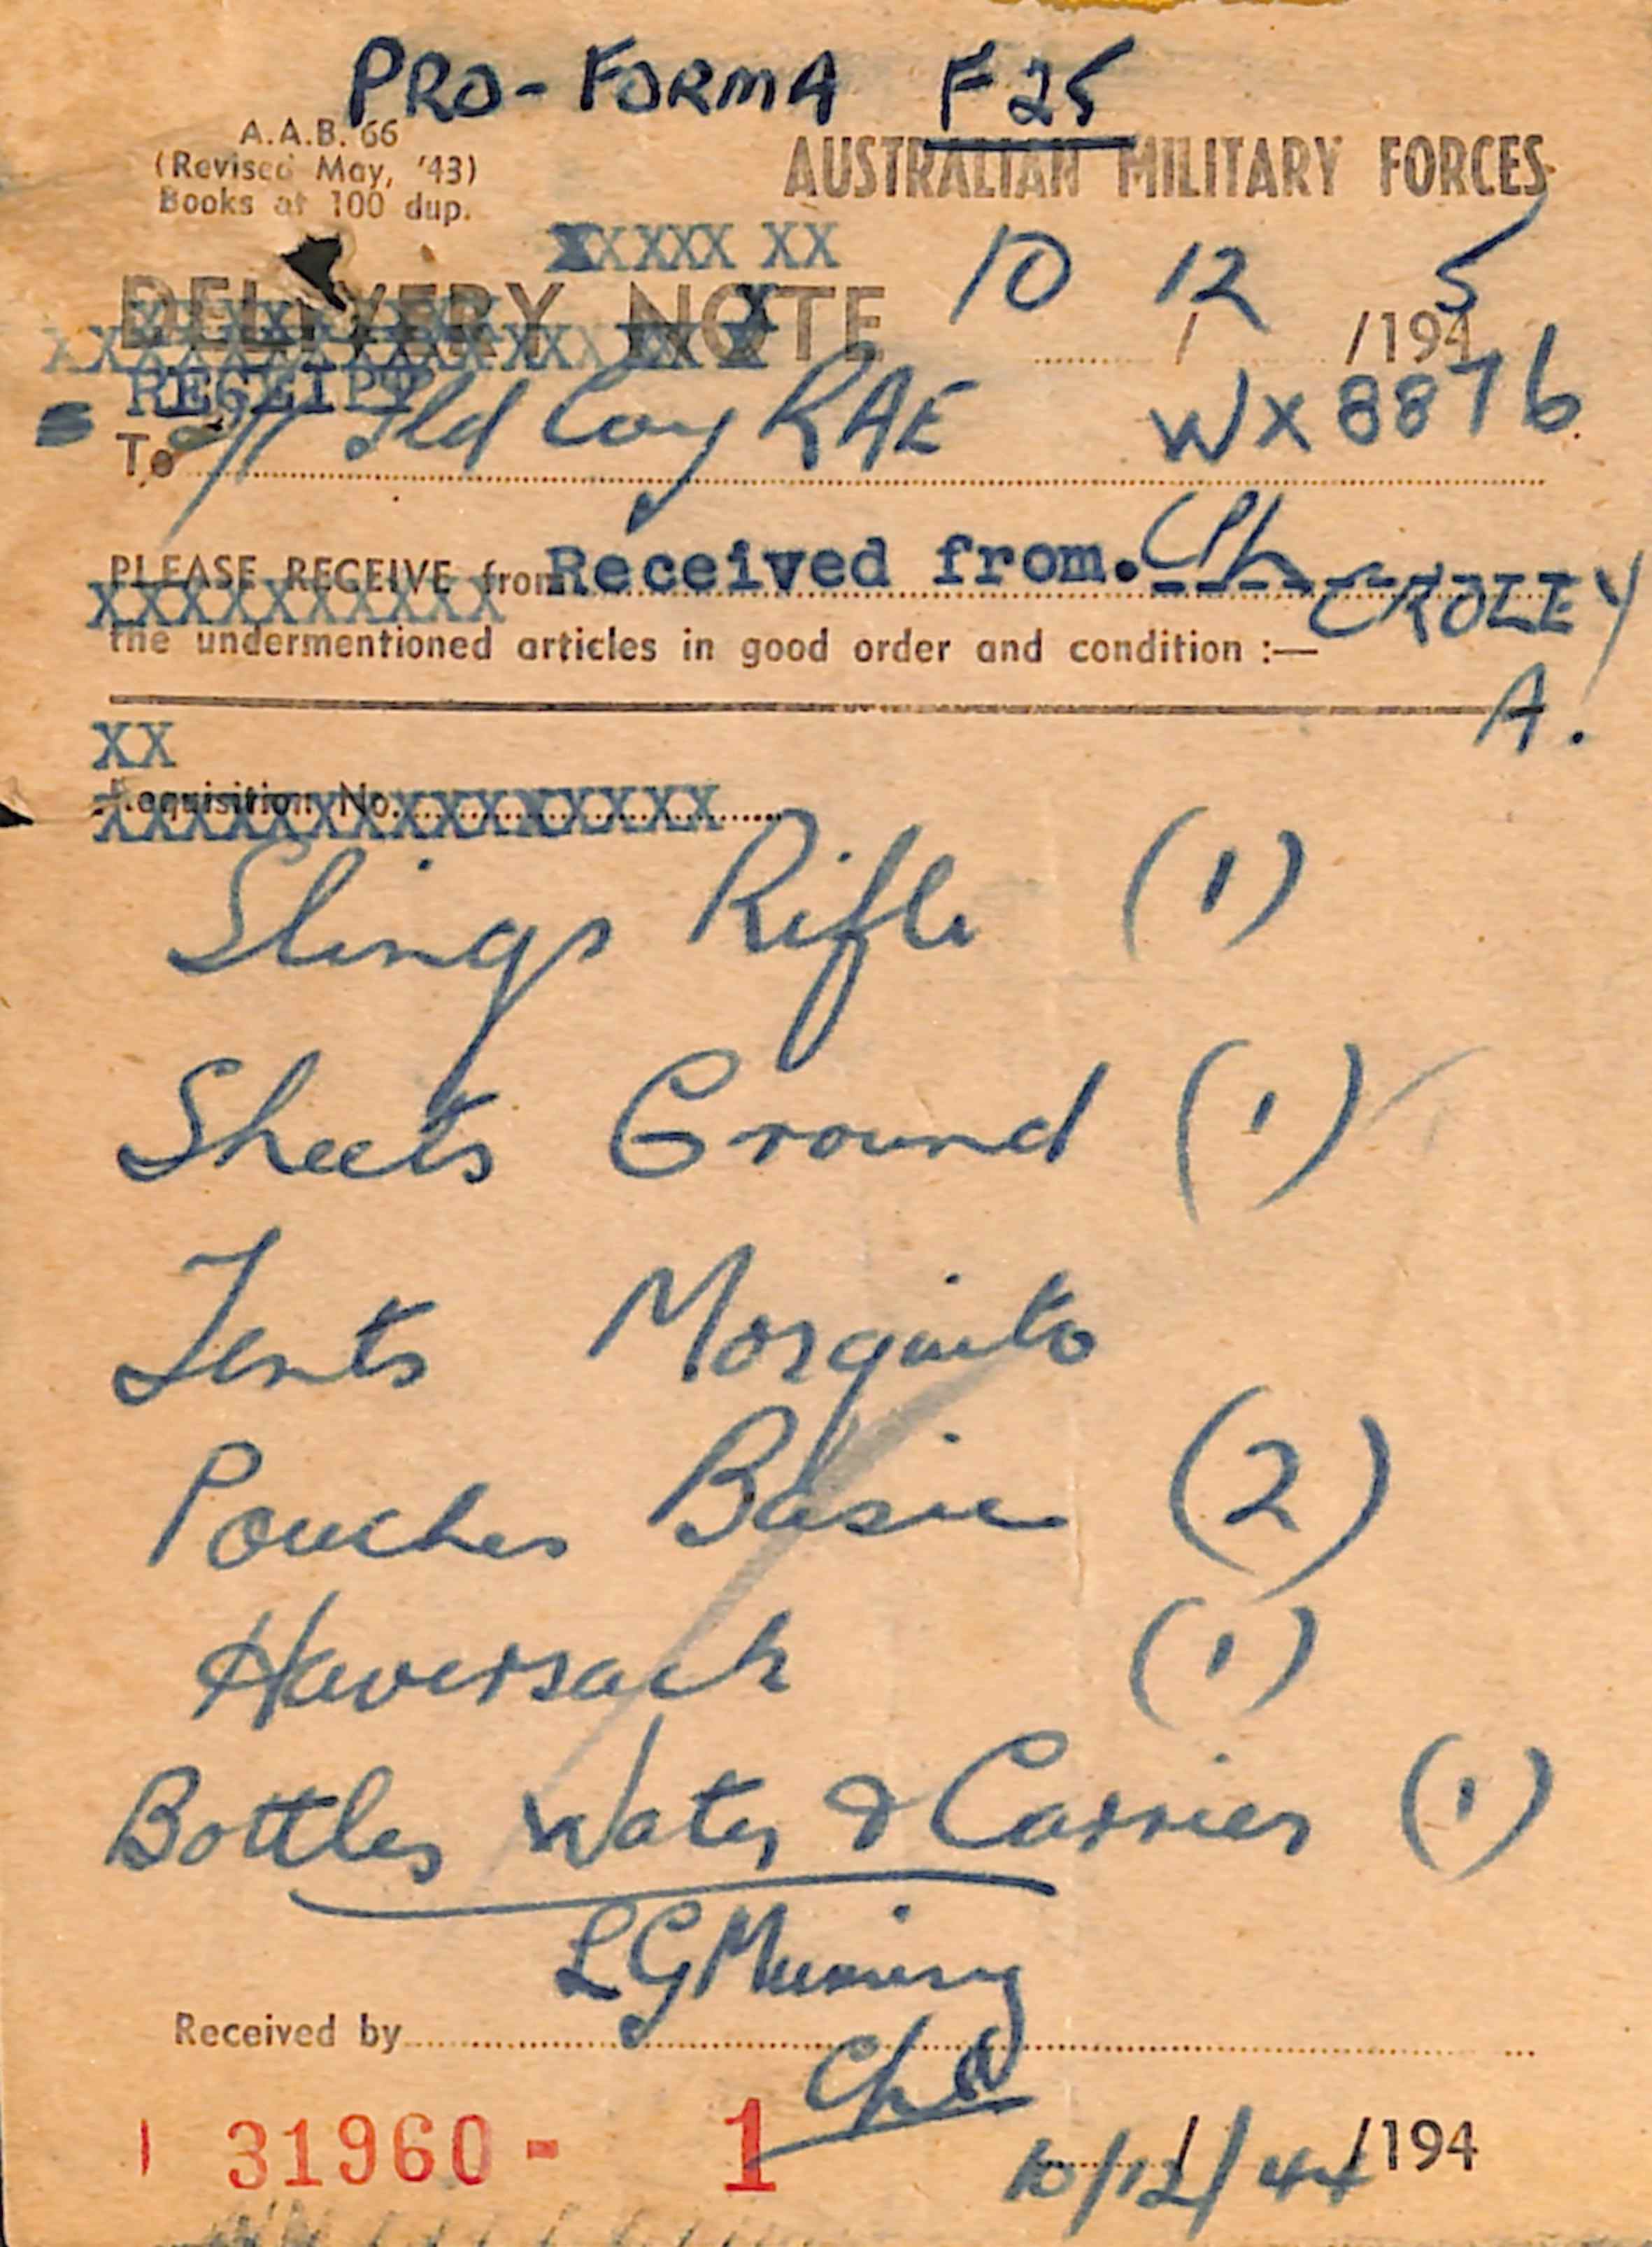 PRO-FORMA F25
A.A.B. 66
(Revised May, '43)
Books at 100 dup.
AUSTRALIAN MILITARY FORCES
XXXXX XX
DELIVERY NOTE 10 / 12 /194 5
RECEIPT
To Fld Coy RAE WX 8876
PLEASE RECEIVE from Received from. Cpl CROLEY
the undermentioned articles in good order and condition :—
A.
XX
Requisition No.
Slings Rifle (1)
Sheets Ground (1)
Tents Mosquito
Pouches Basic (2)
Haversack (1)
Bottles Water & Carrier (1)
L G
Received by
Cpl
31960 - 1
10/12/44 / /194